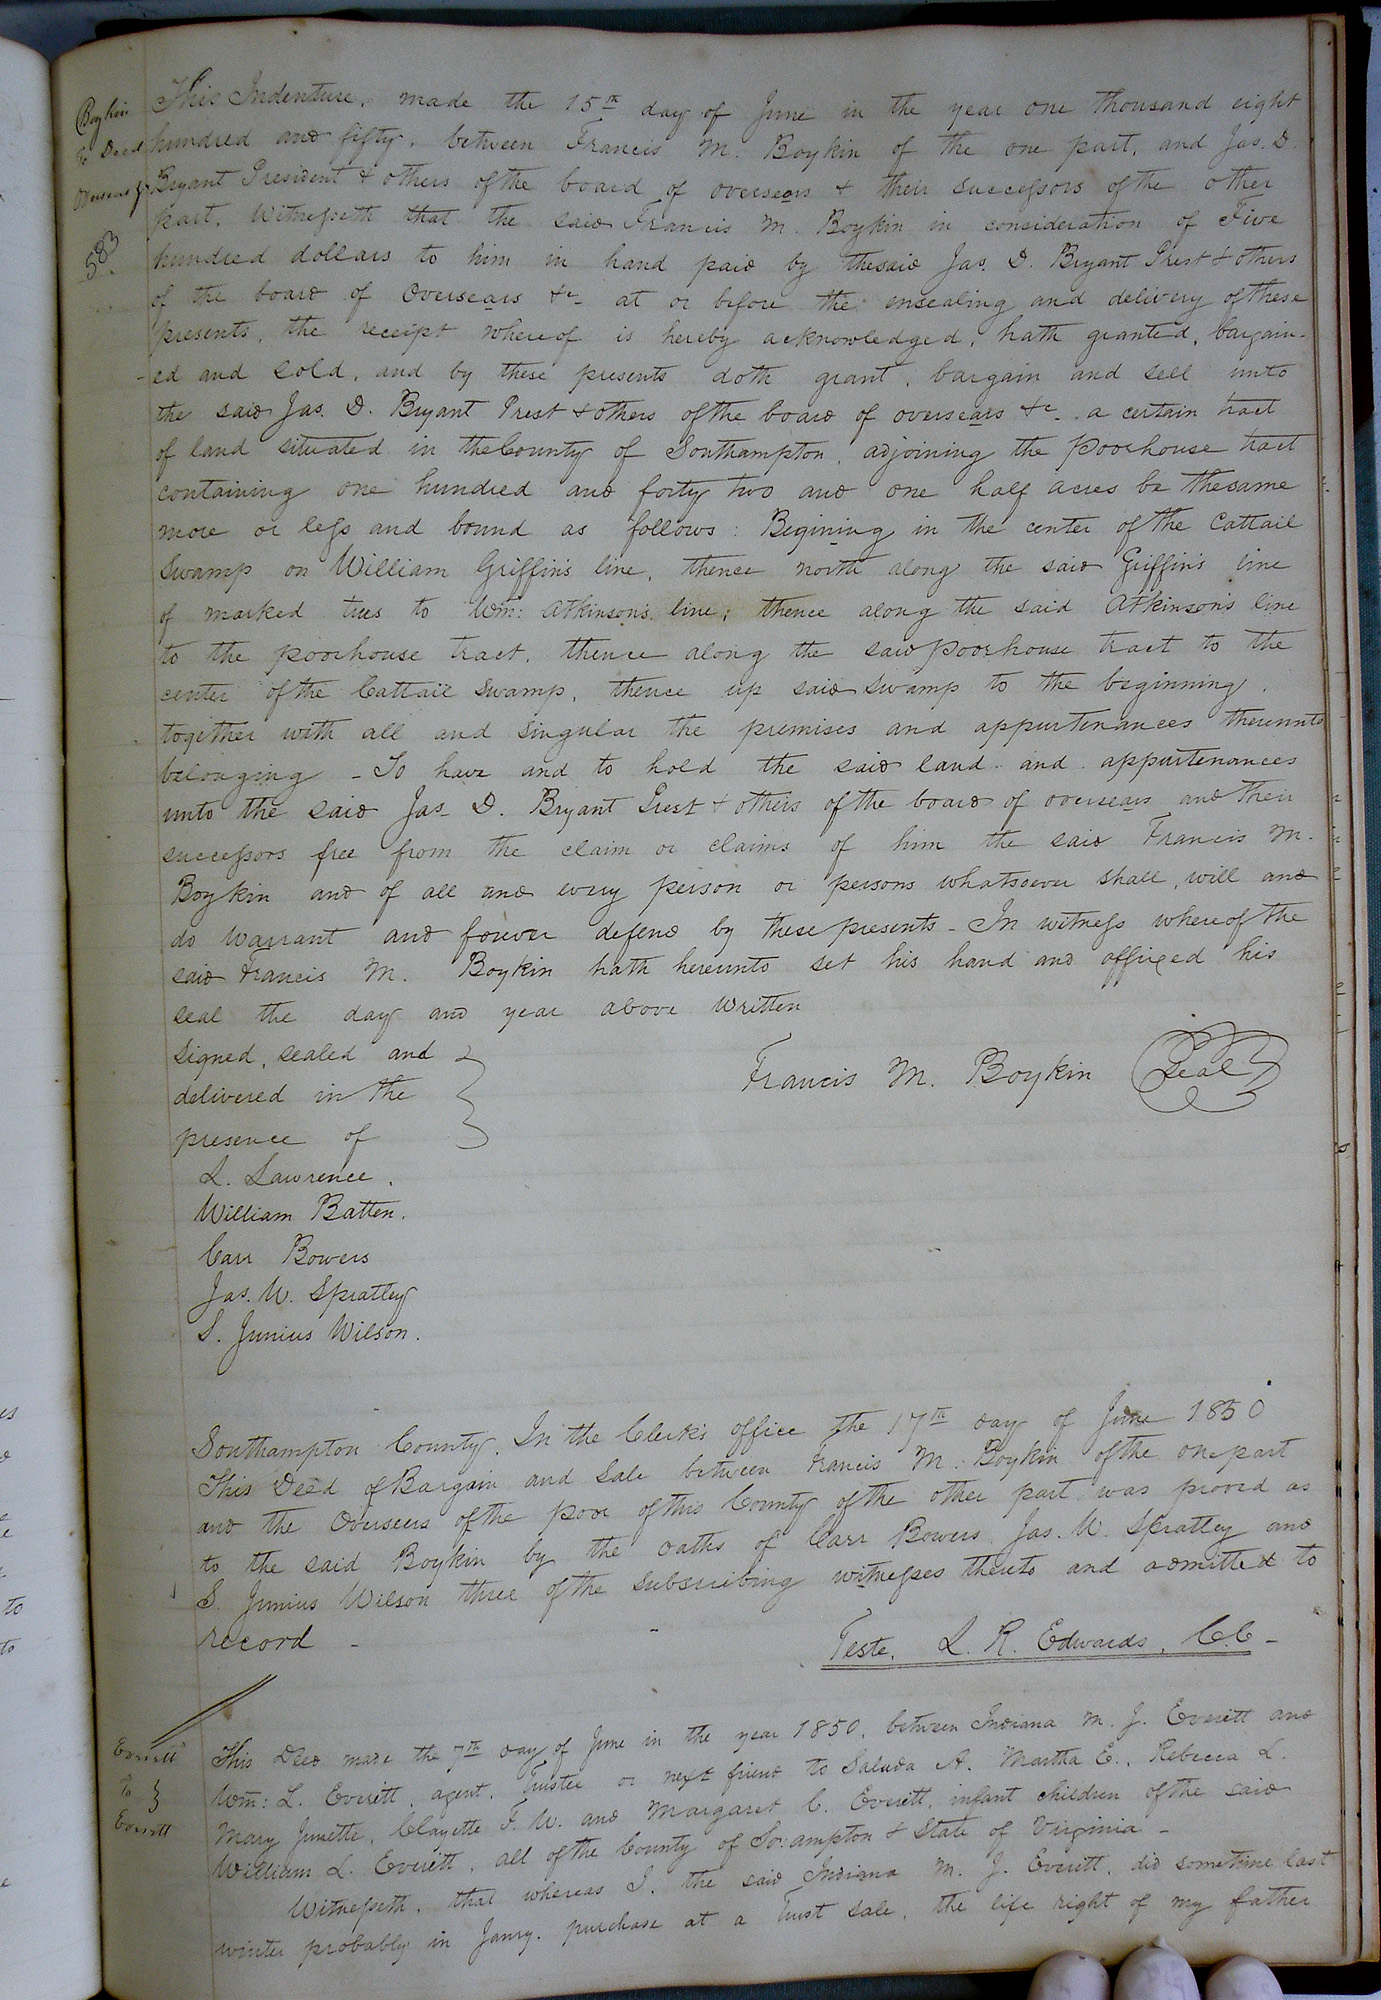 Boykin
to Deed
Overseers &c
583
This Indenture, made the 15th day of June in the year one thousand eight
hundred and fifty, between Francis M. Boykin of the one part, and Jas. D.
Bryant President & others of the board of oversears & their successors of the other
part, Witnesseth that the said Francis M. Boykin in consideration of Five
hundred dollars to him in hand paid by the said Jas. D. Bryant Prest & others
of the board of Oversears &c- at or before the ensealing and delivery of these
presents, the receipt whereof is hereby acknowledged, hath granted, bargain-
-ed and sold, and by these presents doth grant, bargain and sell unto
the said Jas. D. Bryant Prest & others of the board of oversears &c- a certain tract
of land situated in the County of Southampton, adjoining the poorhouse tract
containing one hundred and forty two and one half acres be the same
more or less and bound as follows: Begining in the center of the Cattail
Swamp on William Griffin's line, thence north along the said Griffin's line
of marked trees to Wm: Atkinson's line; thence along the said Atkinson's line
to the poorhouse tract, thence along the said poorhouse tract to the
center of the Cattail swamp, thence up said swamp to the beginning,
together with all and singular the premises and appurtenances thereunto
belonging - To have and to hold the said land and appurtenances
unto the said Jas. D. Bryant Prest & others of the board of oversears and their
successors free from the claim or claims of him the said Francis M.
Boykin and of all and every person or persons whatsoever shall, will and
do warrant and forever defend by these presents - In witness whereof the
said Francis M. Boykin hath hereunto set his hand and affixed his
seal the day and year above written
Signed, sealed and
delivered in the
presence of
Francis M. Boykin Seal
L. Lawrence.
William Batten.
Carr Bowers
Jas. W. Spratley
S. Junius Wilson.
Southampton County, In the Clerk's office the 17th day of June 1850
This Deed of Bargain and Sale between Francis M. Boykin of the one part
and the Overseers of the poor of this County of the other part was proved as
to the said Boykin by the oaths of Carr Bowers Jas. W. Spratley and
S. Junius Wilson three of the subscribing witnesses thereto and admitted to
record -
Teste, L. R. Edwards, C.C-
Everett
To
Everett
This Deed made the 7th day of June in the year 1850, between Indiana M. J. Everett and
Wm: L. Everett, agent, Trustee or next friend to Saluda A. Martha E., Rebecca L.
Mary Junette, Clayette F. W. and Margaret C. Everett, infant children of the said
William L. Everett, all of the County of So:ampton & State of Virginia -
Witnesseth, that whereas I, the said Indiana M. J. Everett, did sometime last
winter probably in Janry. purchase at a Trust sale, the life right of my father